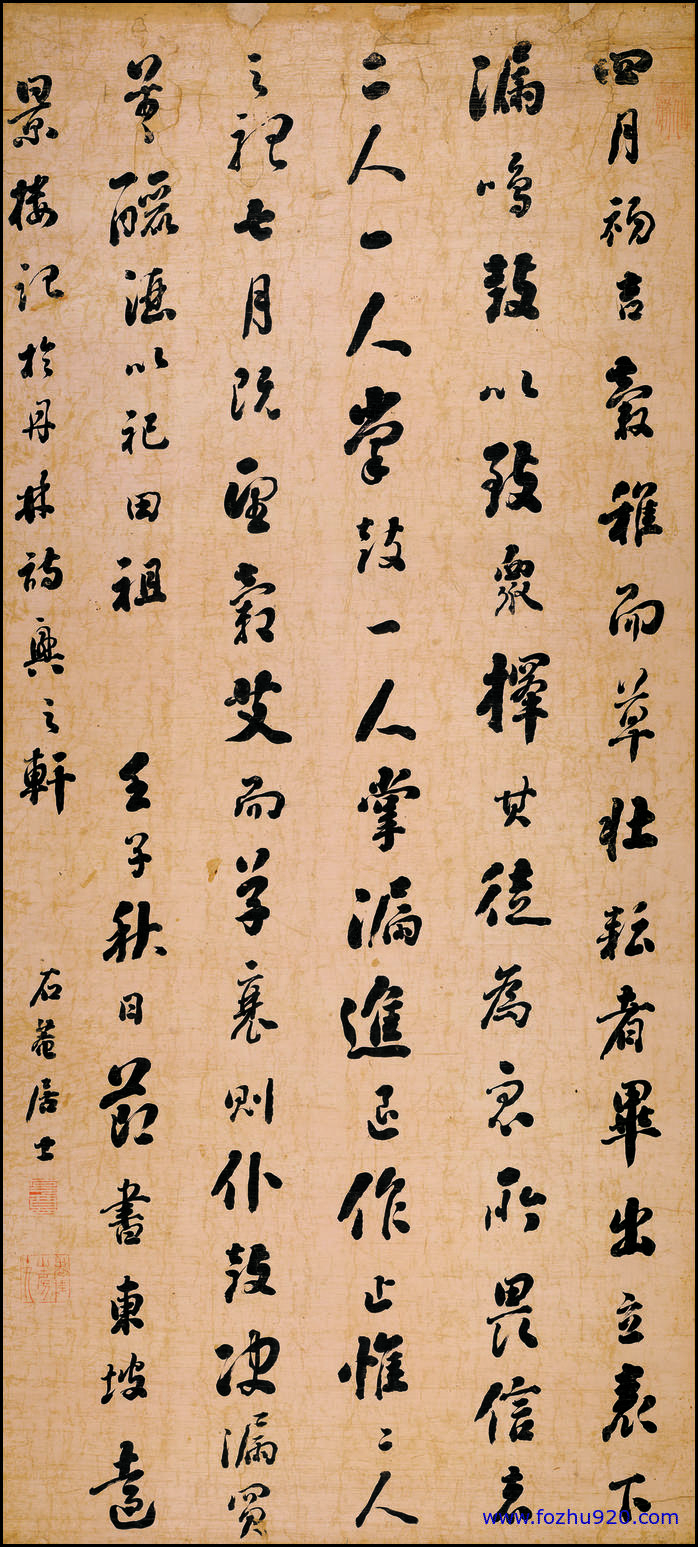 四月初吉穀稚而草壯耘者畢出立表下
漏鳴鼓以致眾擇其徒為眾所畏信者
二人一人掌鼓一人掌漏進退作止惟二人
之聽七月既望穀艾而草衰則仆鼓決漏買
羊釃酒以祀田祖 壬子秋日節書東坡遠
景樓記於丹林詩興之軒
石菴居士
www.fozhu920.com